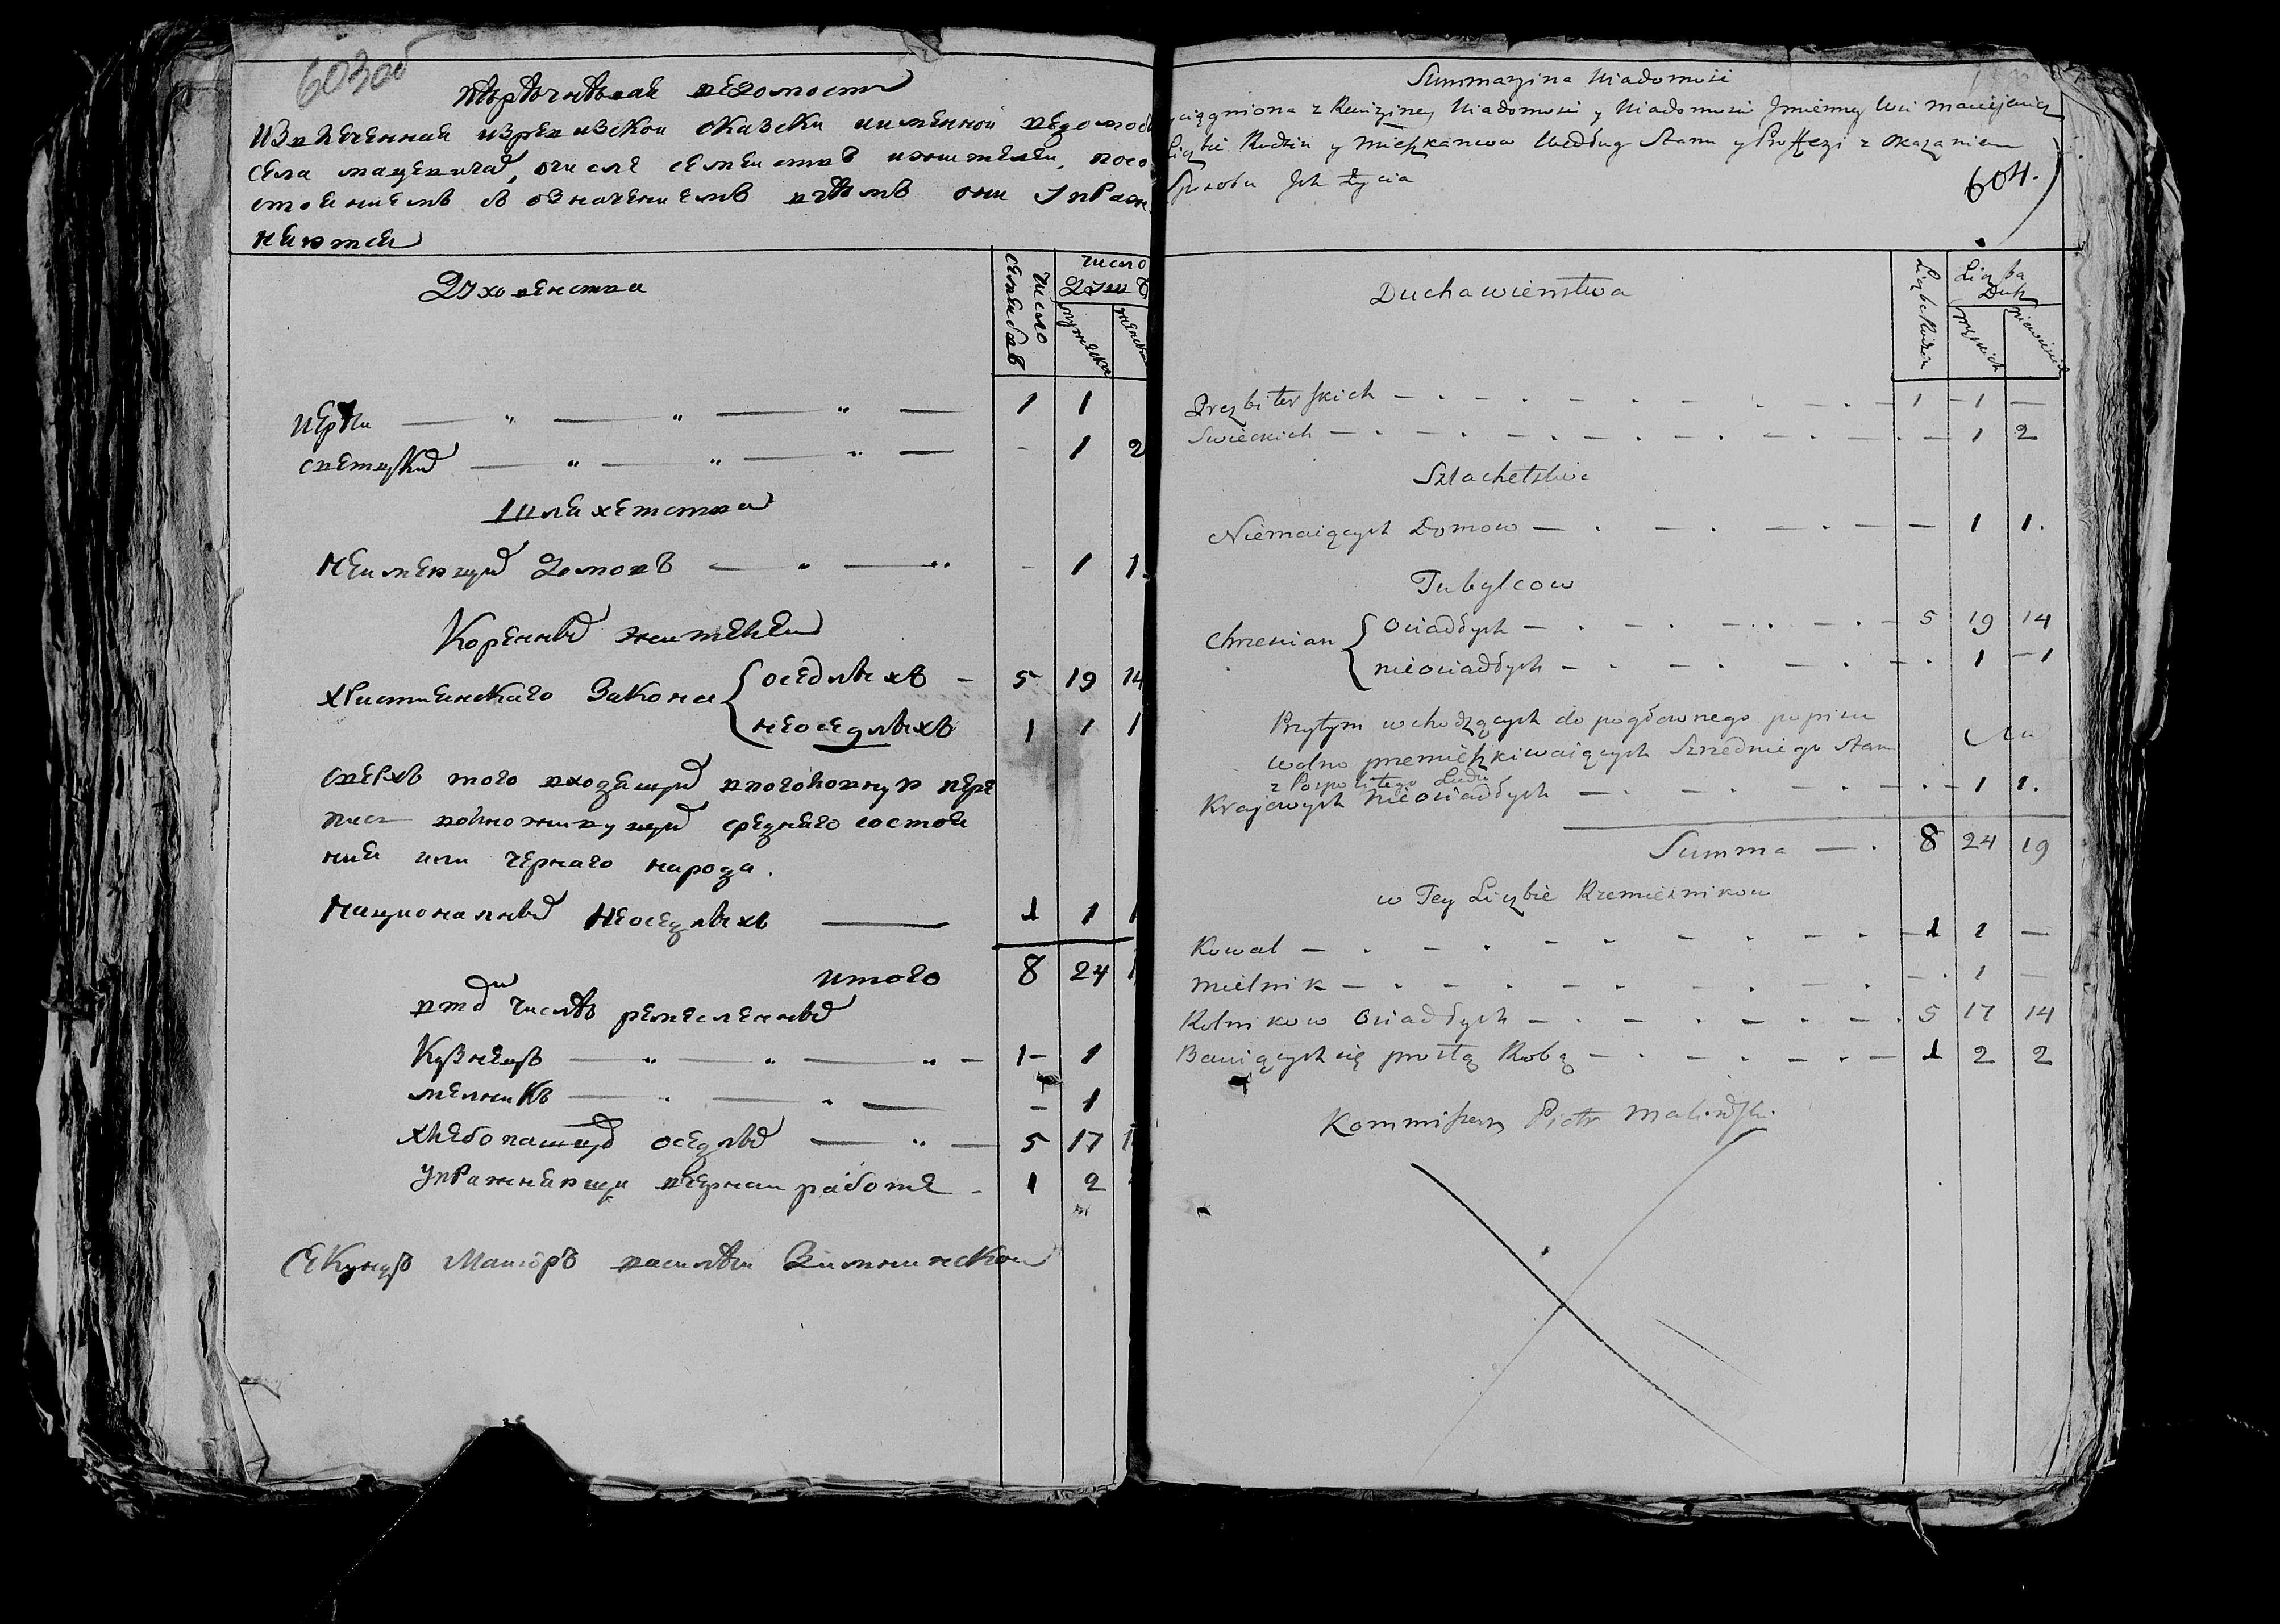 603об
Перечневая ведомость
Извлеченная изревизской сказски иименной ведомос
села мацевичъ, очисле семействъ ижителей, посо
стоениемъ съ означениемъ вчемъ они Упраж
няются
Духовенства
число семействъ
число душъ
мужеска
женска
церкви — „ — „ — „ — 1 1
светскихъ — „ — „ — „ — - 1 2
Шляхетства
Неимеющихъ Домовъ — „ — „ - 1 1.
Коренныхъ жителей
Христианскаго Закона { оседлыхъ — 5 19 14
неоседлыхъ 1 1 1
Сверхъ того входящихъ впоголовную пере
пись вольноживущихъ средняго состоя
ния или чернаго народа.
Националныхъ Неоседлыхъ — 1 1 1
итого 8 24 1
втомъ числъ ремесленныхъ
Кузнецъ — „ — „ — „ — 1 - 1
мелникъ — „ — „ — - 1
хлебопашцовъ оседлыхъ — „ — 5 17 1
Упражняющи вчерной работе - 1 2
Секундъ Маиоръ василей Зилнинской
Summaryina Wiadomość
yciągniona z Rewizyiney Wiadomości y Wiadomości Jmienney Wsi Maciejewicz
Liczbie Rodzin y Mieszkancow Według Stanu y Proffezyi z okazaniem
Sposobu Jch Życia
604.
Duchawienstwa
Liczba Rodzin
Liczba Dusz
męzkich
niewieścich
Prezbiterskich — 1 — 1 —
Swieckich — 1 2
Szlachetstwa
Niemaiących Domow — . — . — . — — 1 1.
Tubylcow
Chrzescian { Osiadłych — . — . — . — 5 19 14
nieosiadłych — . — . — . — . 1 — 1
Przytym wchodzących do pogłownego popisu
wolno przemieszkiwaiących Srzedniego Stanu
z Pospolitego Ludu
Krajowych Nieosiadłych — . — . — . — . — 1 1.
Summa — . 8 24 19
w Tey Liczbie Rzemiesnikow
Kowal — . — . — . — . — 1 1 —
Mielnik — . — . — . — . — . 1 —
Rolnikow Osiadłych — . — . — . — . 5 17 14
Bawiących się prostą Robą — . — . — . — 1 2 2
Kommissarz Piotr Malinoski.